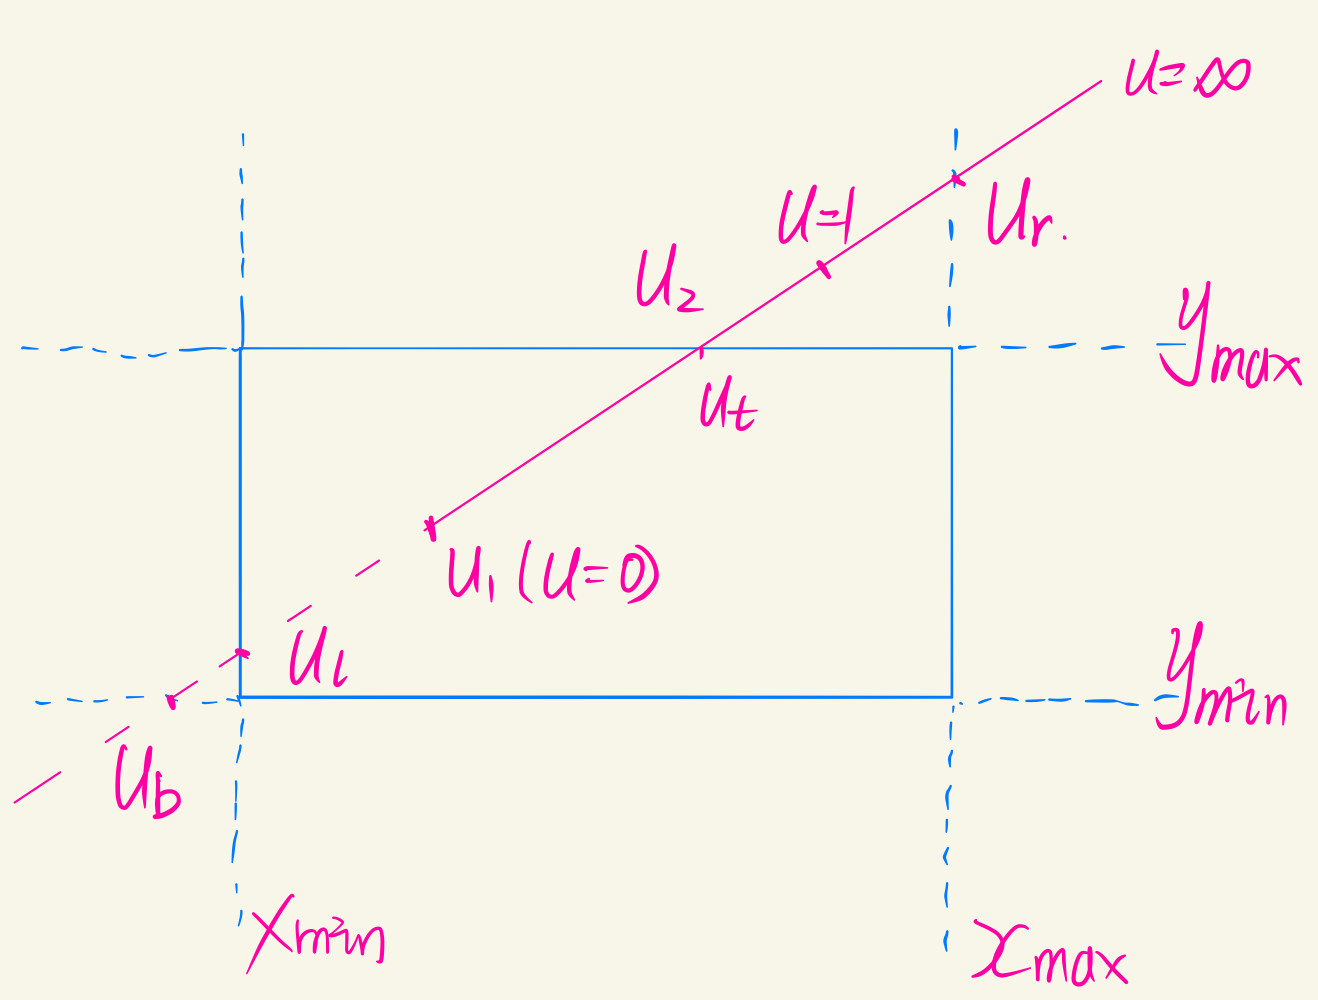 u=∞
u=1
Ur.
U₂
Ymax
Ut
U₁(U=0)
Ul
Ymin
Ub
Xmin
Xmax